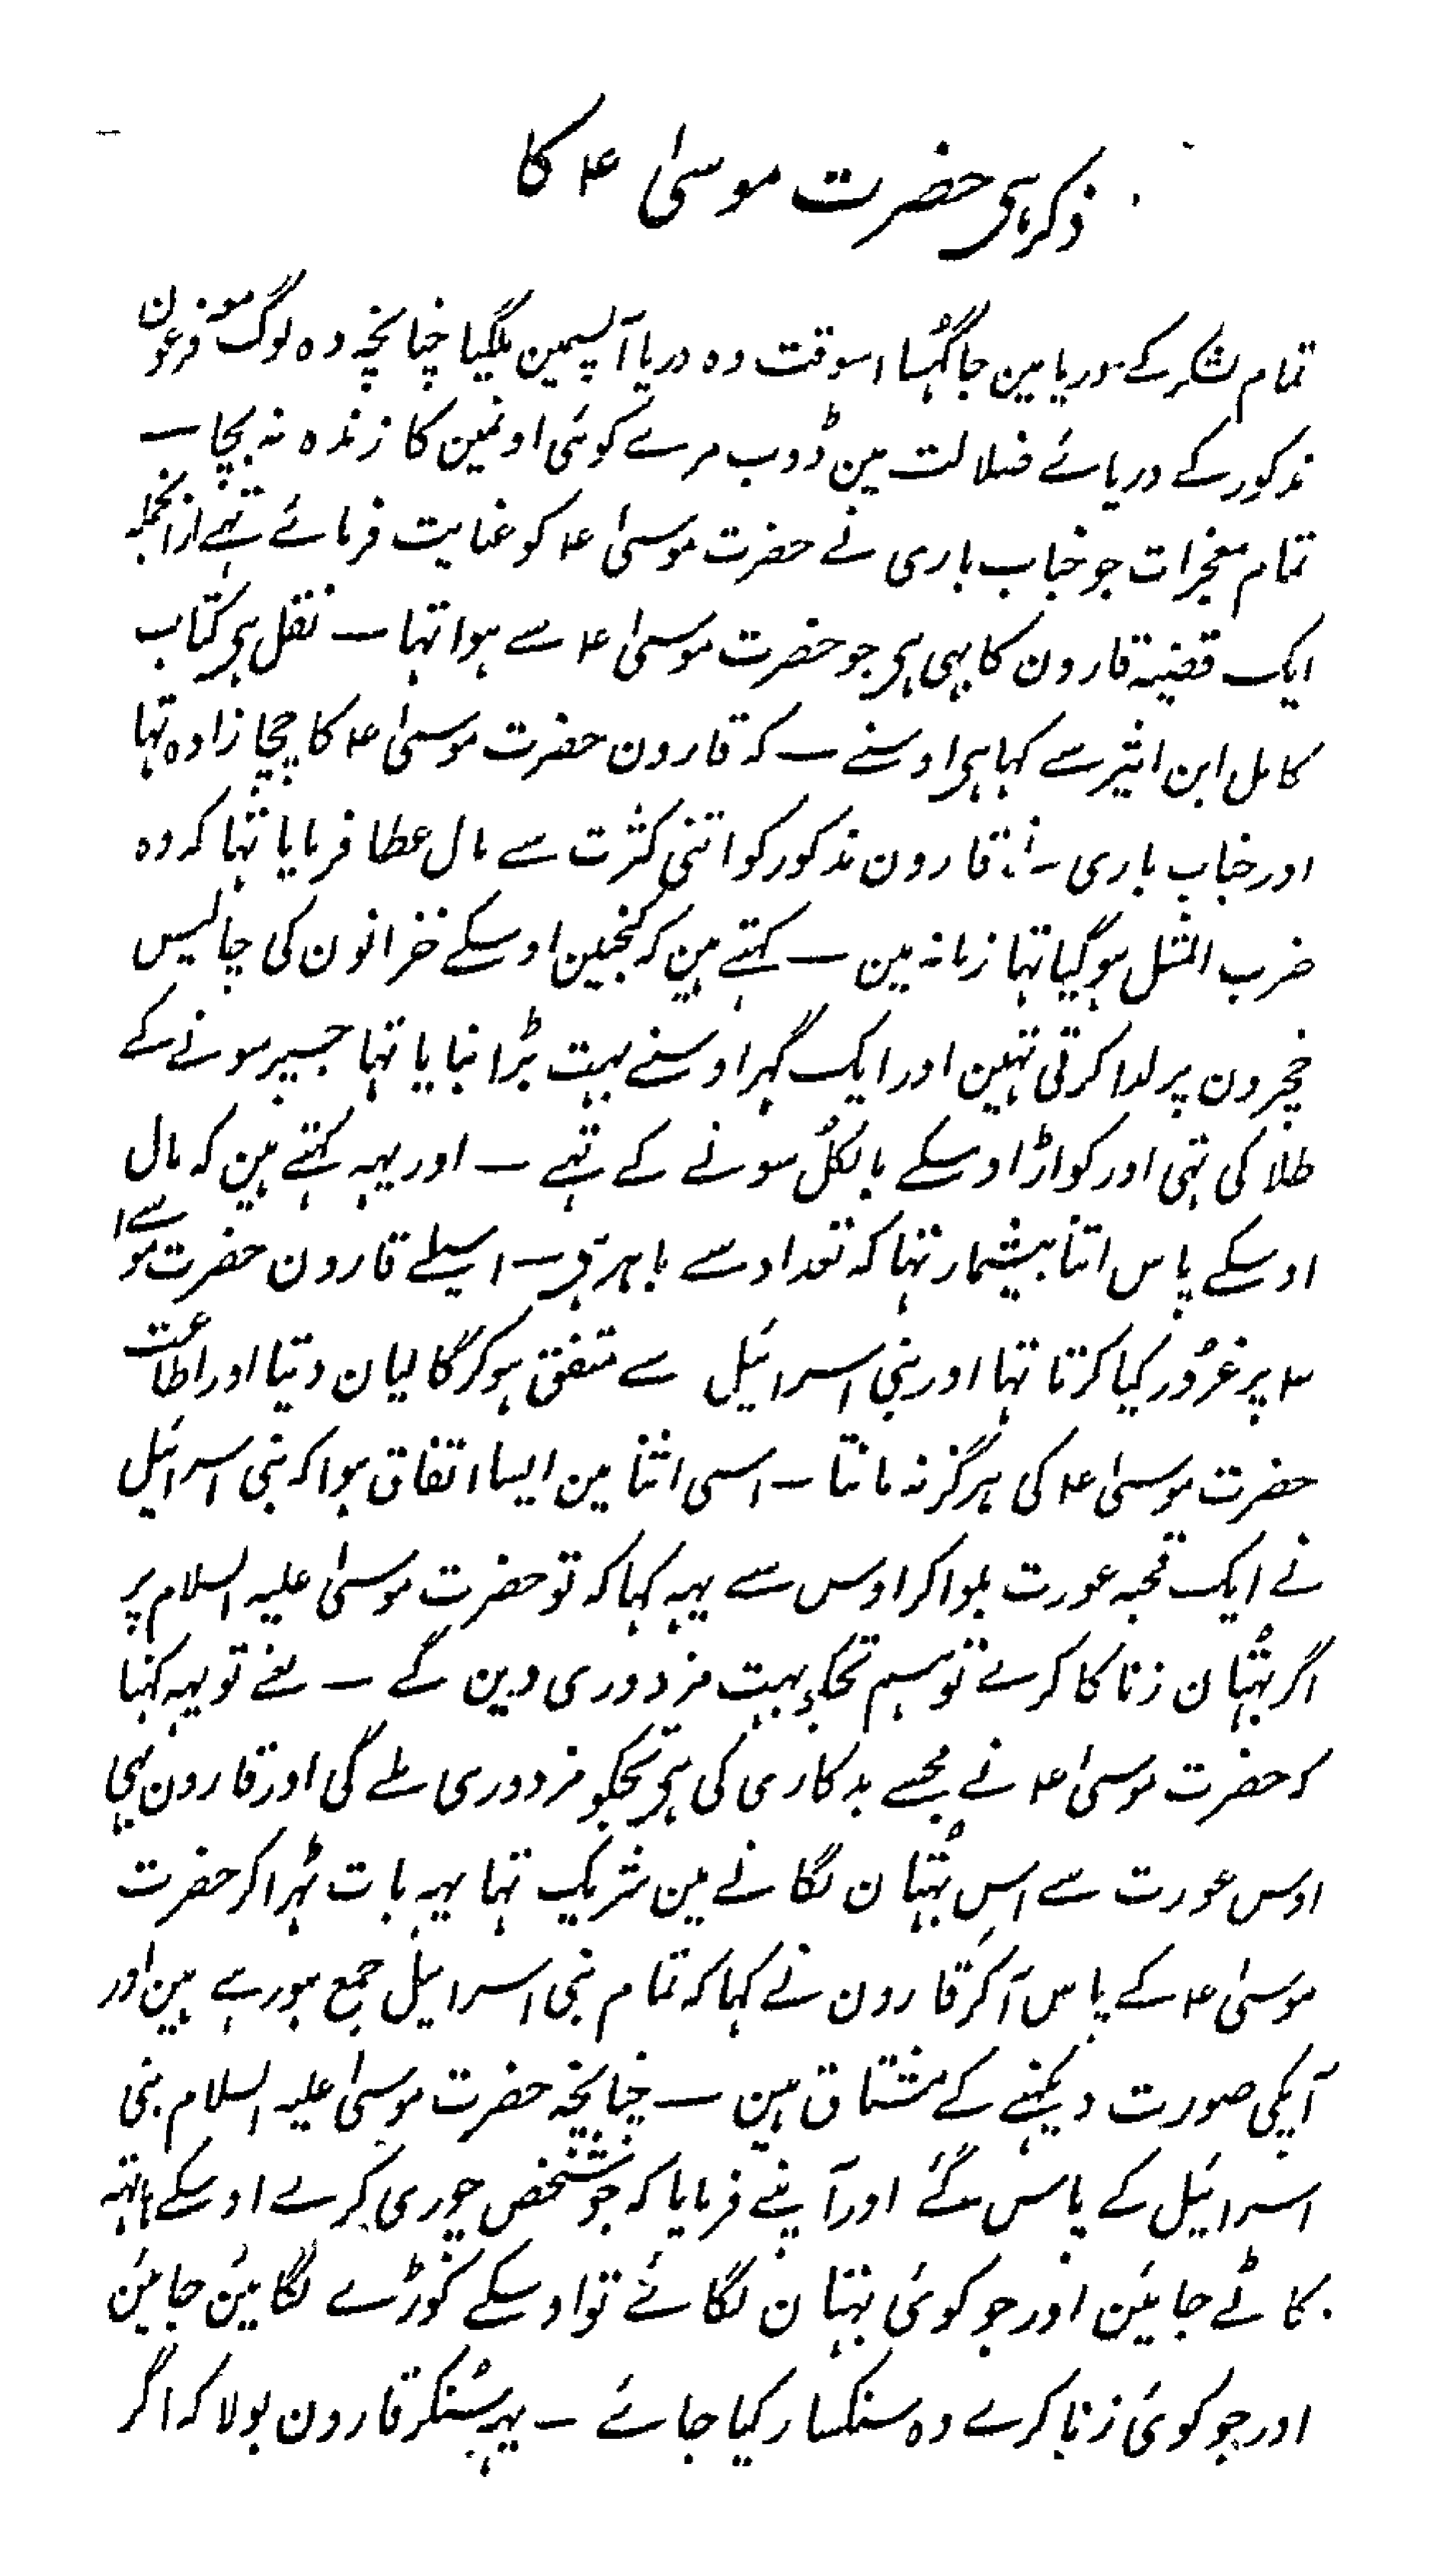 ذکر ہی حضرت موسیٰ ۴ کا
تمام لشکر کے دریا مین جا گہُسا اسوقت وہ دریا آپسمین ملگیا چنانچہ وہ لوگ معہ فرعون
مذکور کے دریائے ضلالت مین ڈوب مرے کوئی اونمین کا زندہ نہ بچا ـــ
تمام معجزات جو جناب باری نے حضرت موسیٰ ۴ کو عنایت فرمائے تہے ازانجملہ
ایک قضیہ قارون کا یہی ہی جو حضرت موسیٰ ۴ سے ہوا تہا ـــ نقل ہی کتاب
کامل ابن اثیر سے کہا ہی اوسنے ـــ کہ قارون حضرت موسیٰ ۴ کا چچا زادہ تہا
اور جناب باری نے قارون مذکور کو اتنی کثرت سے مال عطا فرمایا تہا کہ وہ
ضرب المثل ہوگیا تہا زمانہ مین ـــ کہتے ہین کہ کنجیین اوسکے خزانون کی چالیس
خچرون پر لدا کرتی تہین اور ایک گہر اوسنے بہت بڑا بنایا تہا جسپر سونے کے
طلا کی تہی اور کواڑ اوسکے بالکلُ سونے کے تہے ـــ اور یہہ کہتے ہین کہ مال
اوسکے پاس اتنا بیشمار تہا کہ تعداد سے باہر ہی ـــ اسیلے قارون حضرت موسےٰ
۴ پر غرُور کیا کرتا تہا اور بنی اسرائیل سے متفق ہوکر گالیان دیتا اور اطاعت
حضرت موسیٰ ۴ کی ہرگز نہ مانتا ـــ اسی اثنا مین ایسا اتفاق ہوا کہ بنی اسرائیل
نے ایک قحبہ عورت بلوا کر اوس سے یہہ کہا کہ تو حضرت موسیٰ علیہ السلام پر
اگر بہُتان زنا کا کرے تو ہم تجکو بہت مزدوری دین گے ـــ یعنے تو یہہ کہنا
کہ حضرت موسیٰ ۴ نے مجھسے بدکاری کی ہی تجکو مزدوری ملے گی اور قارون بہی
اوس عورت سے اس بہُتان لگانے مین شریک تہا یہہ بات ٹہرا کر حضرت
موسیٰ ۴ کے پاس آکر قارون نے کہا کہ تمام بنی اسرائیل جمع ہورہے ہین اور
آپکی صورت دیکہنے کے مشتاق ہین ـــ چنانچہ حضرت موسیٰ علیہ السلام بنی
اسرائیل کے پاس گئے اور آپنے فرمایا کہ جو شخص چوری کرے اوسکے ہاتہہ
کاٹے جائین اور جو کوئی بہتان لگائے تو اوسکے کوڑے لگائین جائین
اور جو کوئی زنا کرے وہ سنگسار کیا جائے ـــ یہہ سُنکر قارون بولا کہ اگر